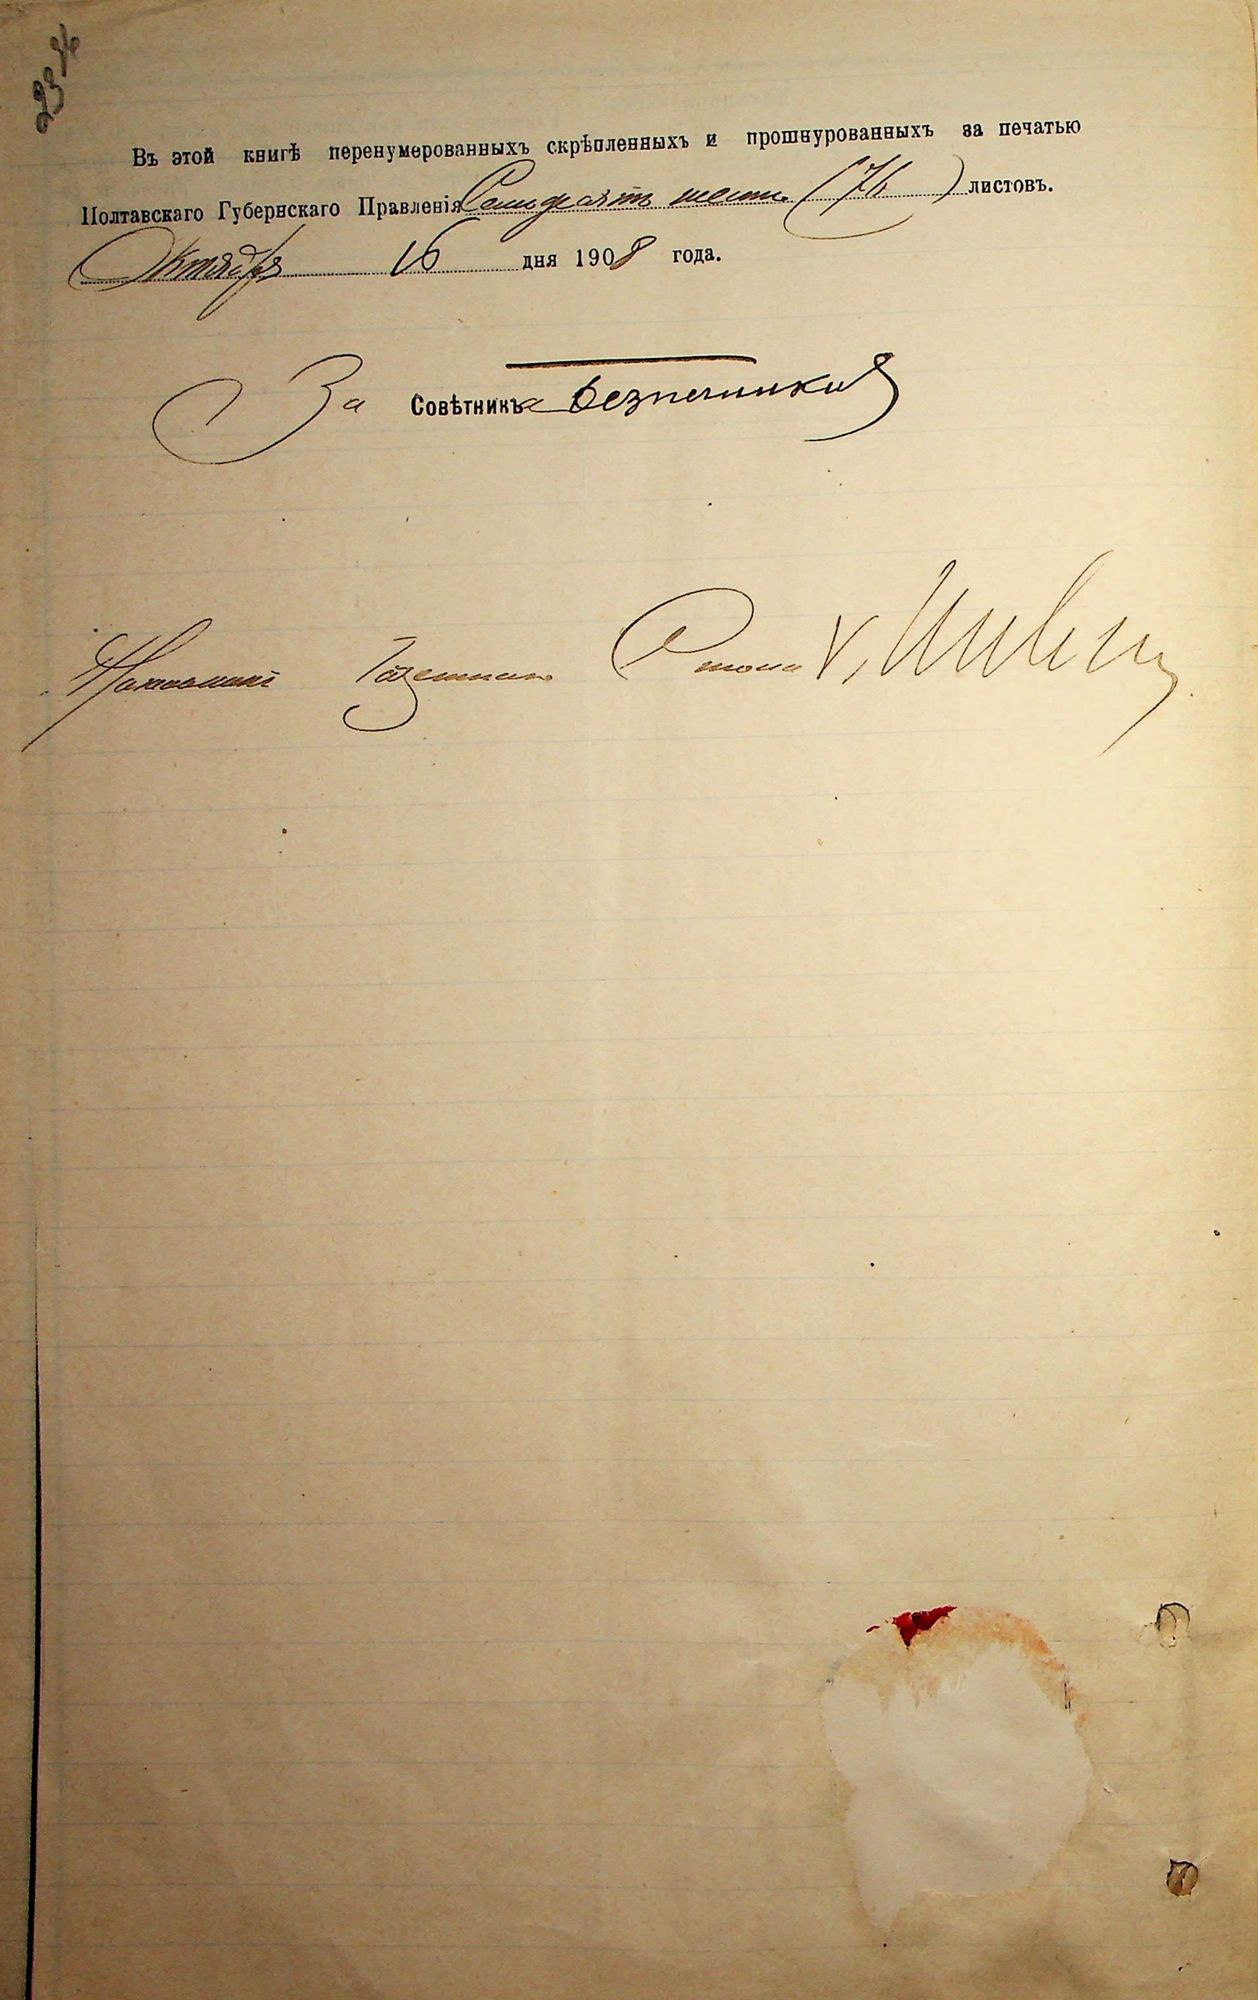 Въ этой книгѣ перенумерованныхъ скрѣпленныхъ и прошнурованныхъ за печатью
Полтавскаго Губернскаго Правленія Семидесять шесть (76) листовъ.
Октября 16 дня 1908 года.
За Совѣтника
Стола